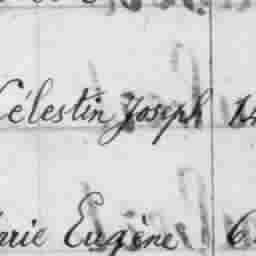 Célestin Joseph 14
Marie Eugène 6